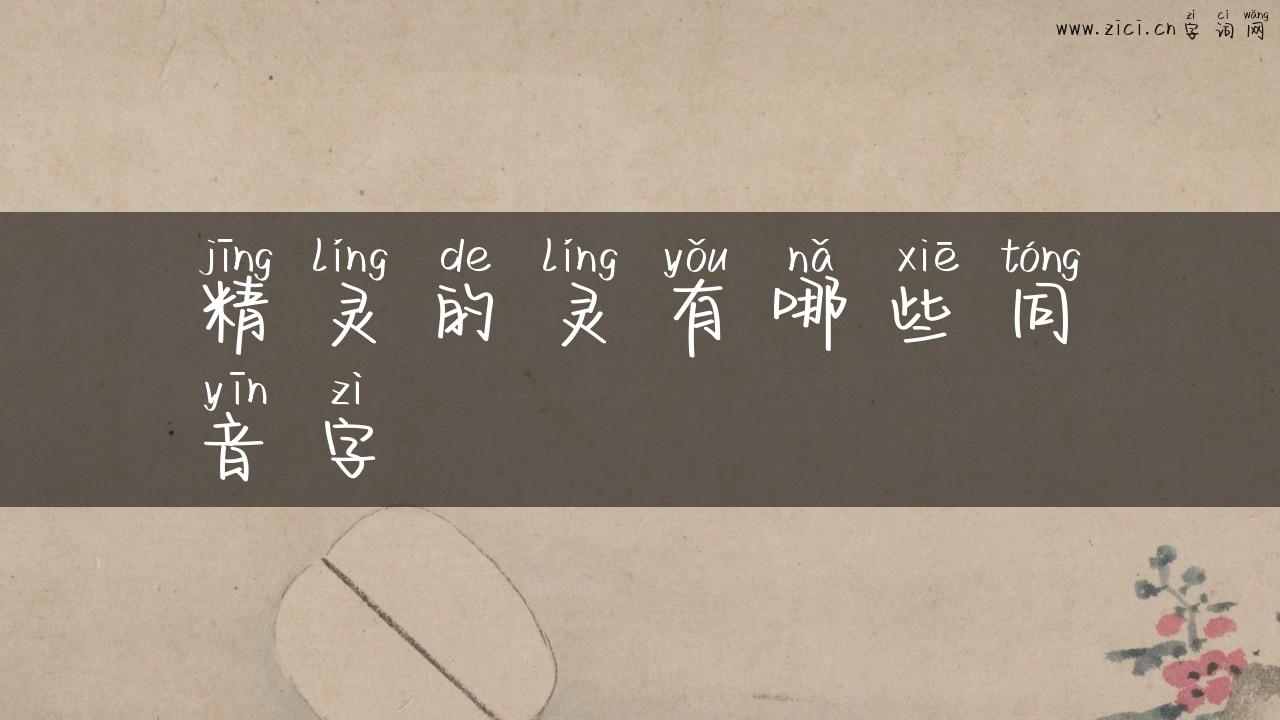 zì cí wǎng
www.zici.cn字词网
jīng líng de líng yǒu nǎ xiē tóng
精灵的灵有哪些同
yīn zì
音字